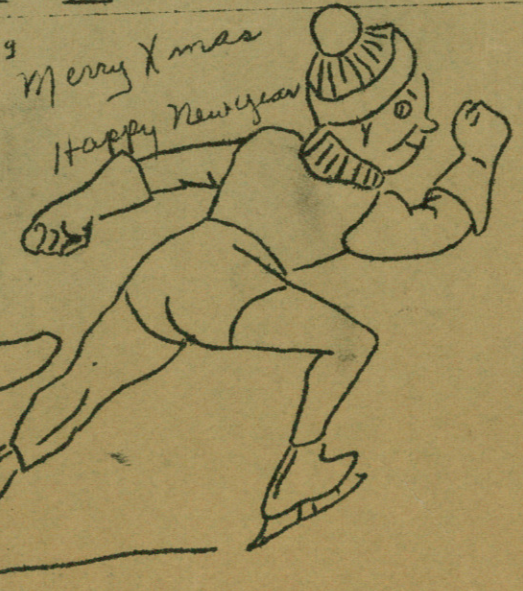 9
Merry Xmas
Happy New Year